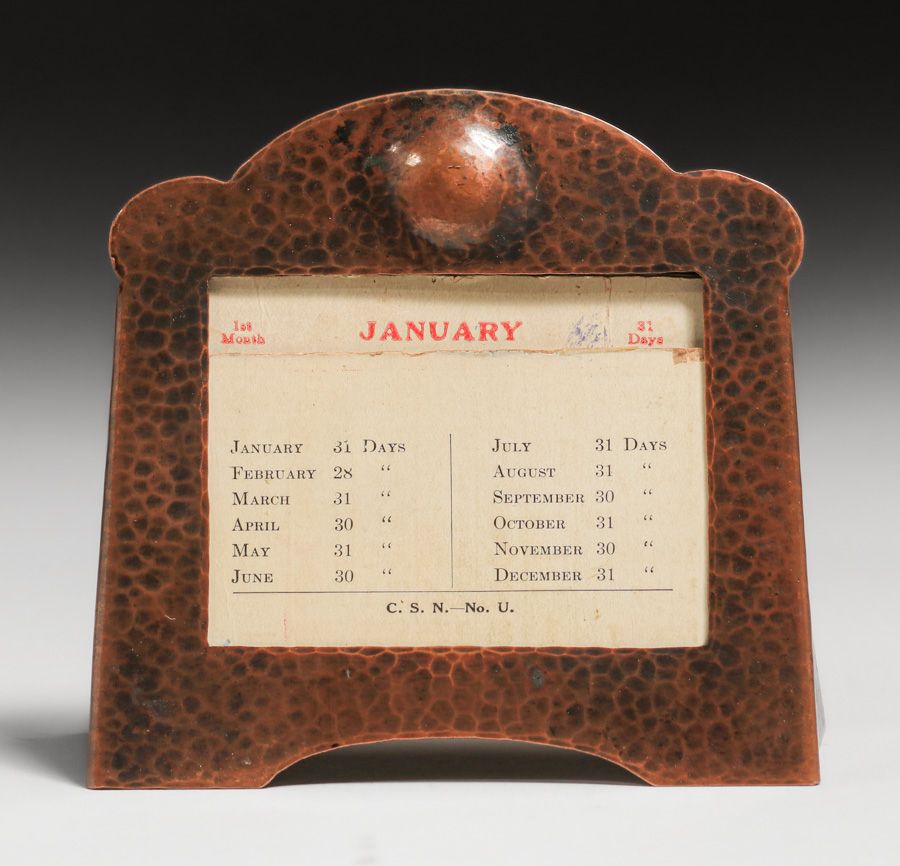 1st JANUARY 31
Month Days
JANUARY 31 DAYS
FEBRUARY 28 “
MARCH 31 “
APRIL 30 “
MAY 31 “
JUNE 30 “
JULY 31 DAYS
AUGUST 31 “
SEPTEMBER 30 “
OCTOBER 31 “
NOVEMBER 30 “
DECEMBER 31 “
C. S. N.—No. U.